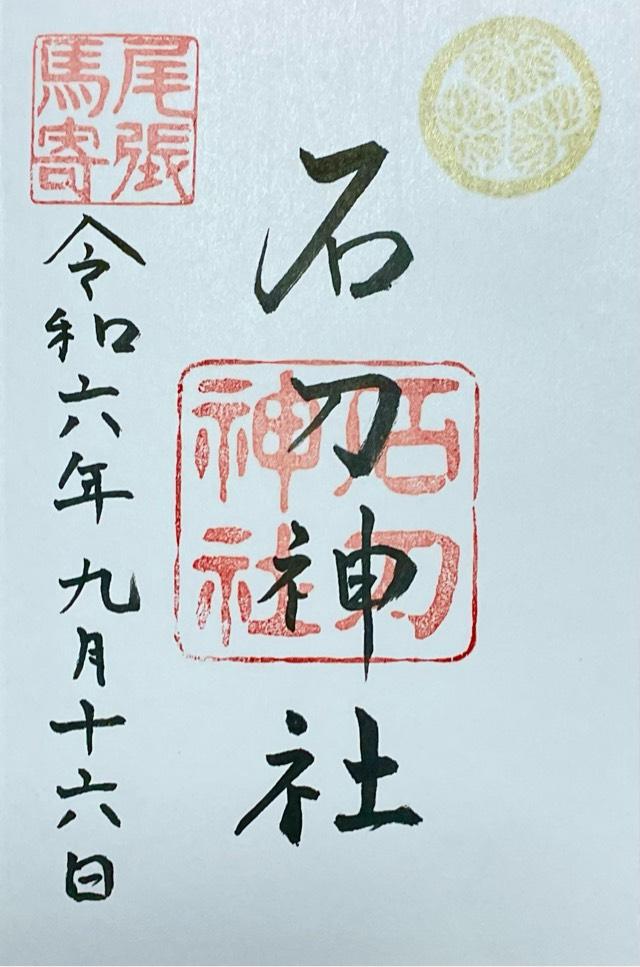 石刀神社
石刀
神社
尾張
馬寄
令和六年九月十六日